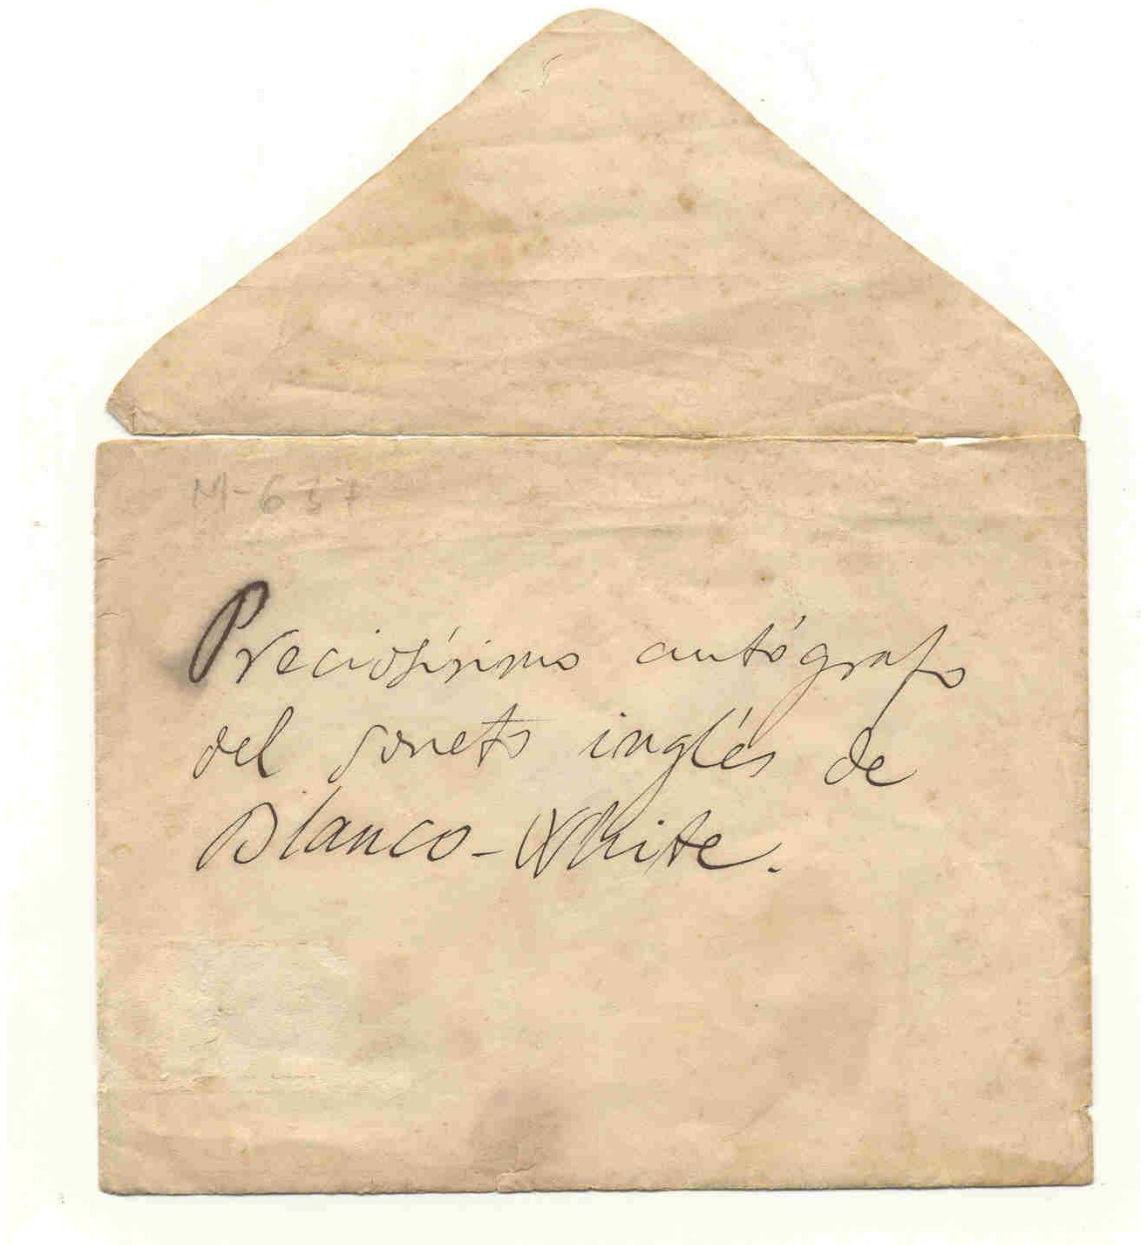 M-637
Preciosísimo autógrafo
del soneto inglés de
Blanco-White.